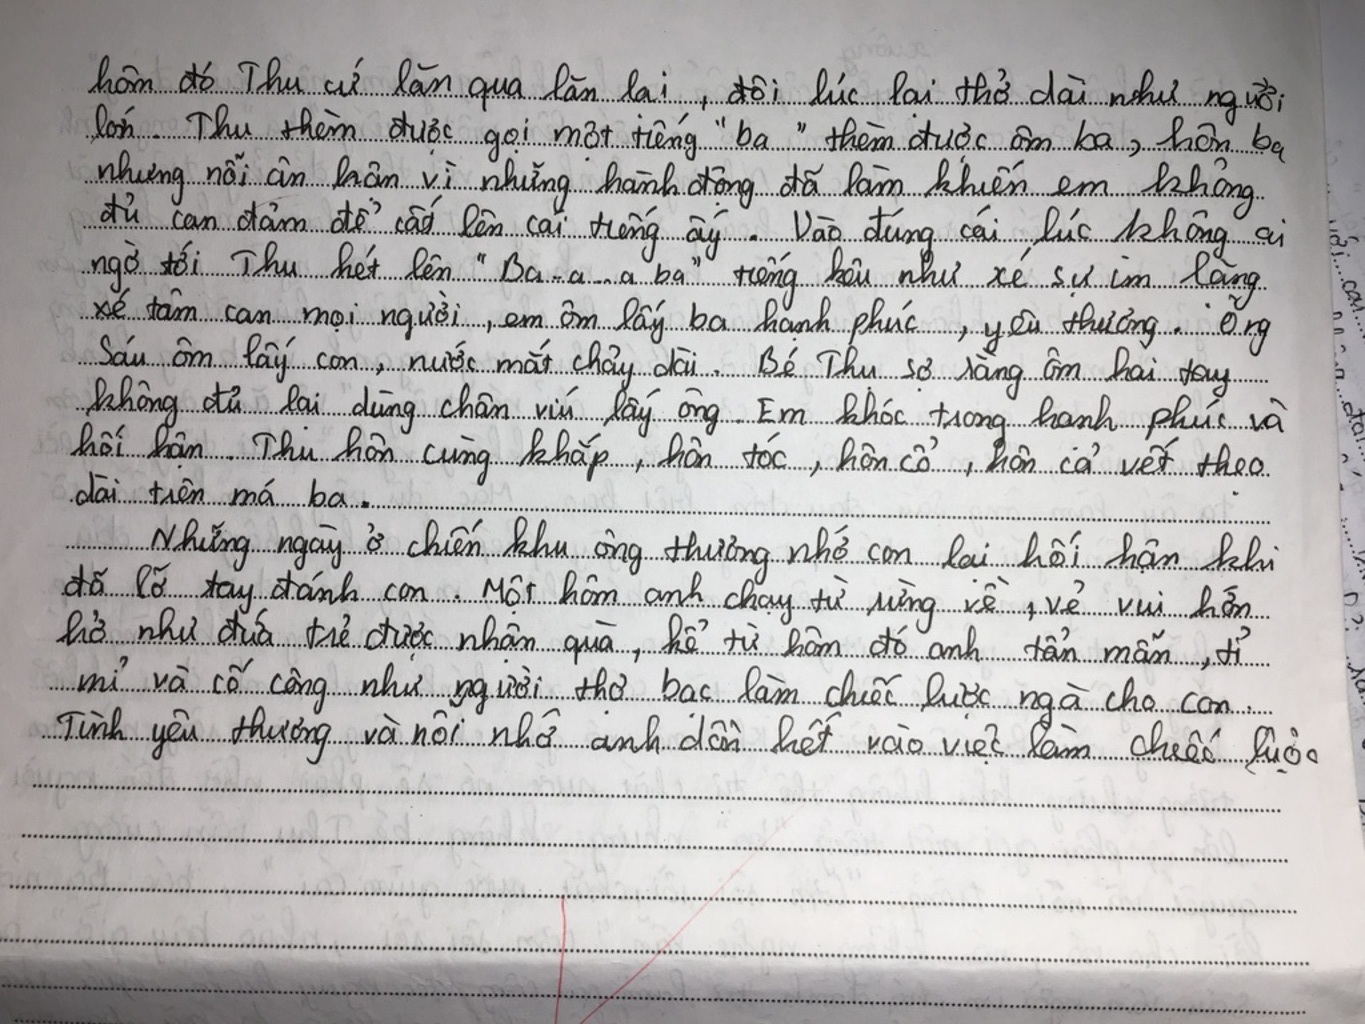 hôm đó Thu cứ lăn qua lăn lại, đôi lúc lại thở dài như người
lớn. Thu thèm được gọi một tiếng "ba" thèm được ôm ba, hôn ba
nhưng nỗi ân hận vì những hành động đã làm khiến em không
đủ can đảm để cất lên cái tiếng ấy. Vào đúng cái lúc không ai
ngờ tới Thu hét lên "Ba..a...a ba" tiếng kêu như xé sự im lặng
xé tâm can mọi người, em ôm lấy ba hạnh phúc, yêu thương. Ông
Sáu ôm lấy con, nước mắt chảy dài. Bé Thu sợ rằng ôm hai tay
không đủ lại dùng chân víu lấy ông. Em khóc trong hạnh phúc và
hối hận. Thu hôn cùng khắp, hôn tóc, hôn cổ, hôn cả vết thẹo
dài trên má ba.
Những ngày ở chiến khu ông thường nhớ con lại hối hận khi
đã lỡ tay đánh con. Một hôm anh chạy từ rừng về, vẻ vui hớn
hở như đứa trẻ được nhận quà, kể từ hôm đó anh tẩn mẩn, tỉ
mỉ và cố công như người thợ bạc làm chiếc lược ngà cho con.
Tình yêu thương và nỗi nhớ anh dồn hết vào việc làm chiếc lược